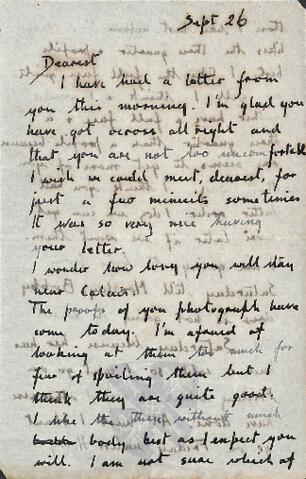 Sept 26
Dearest
I have had a letter from
you this morning. I'm glad you
have got across all right and
that you are not too uncomfortable
I wish we could meet, dearest, for
just a few minuits sometimes
It was so very nice having
your letter.
I wonder how long you will stay
near Calais.
The proofs of you photograph have
come today. I'm afraid of
looking at them too much for
fear of spoiling them but I
think they are quite good.
I like the three without much
body best as I expect you
will. I am not sure which of